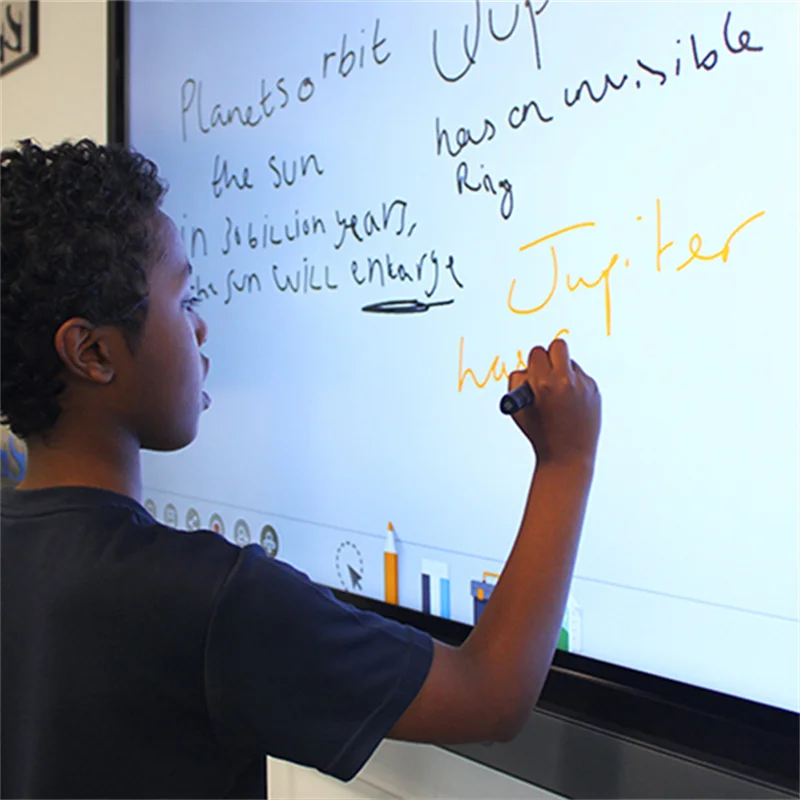 Planets orbit
the sun
in 30 billion years,
the sun will enlarge
Jup
has an invisible
Ring
Jupiter
has